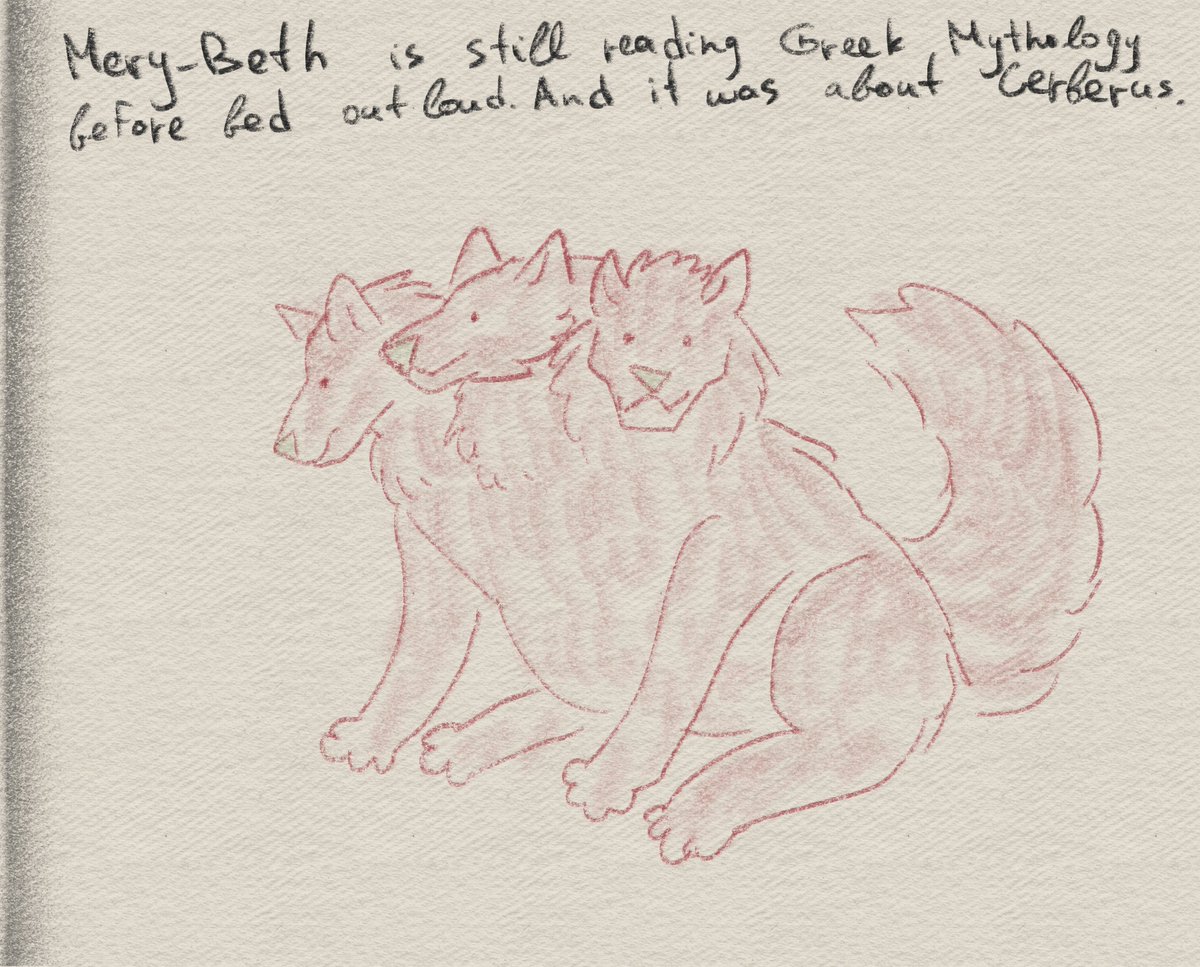 Mery-Beth is still reading Greek Mythology
before bed out loud. And it was about Cerberus.